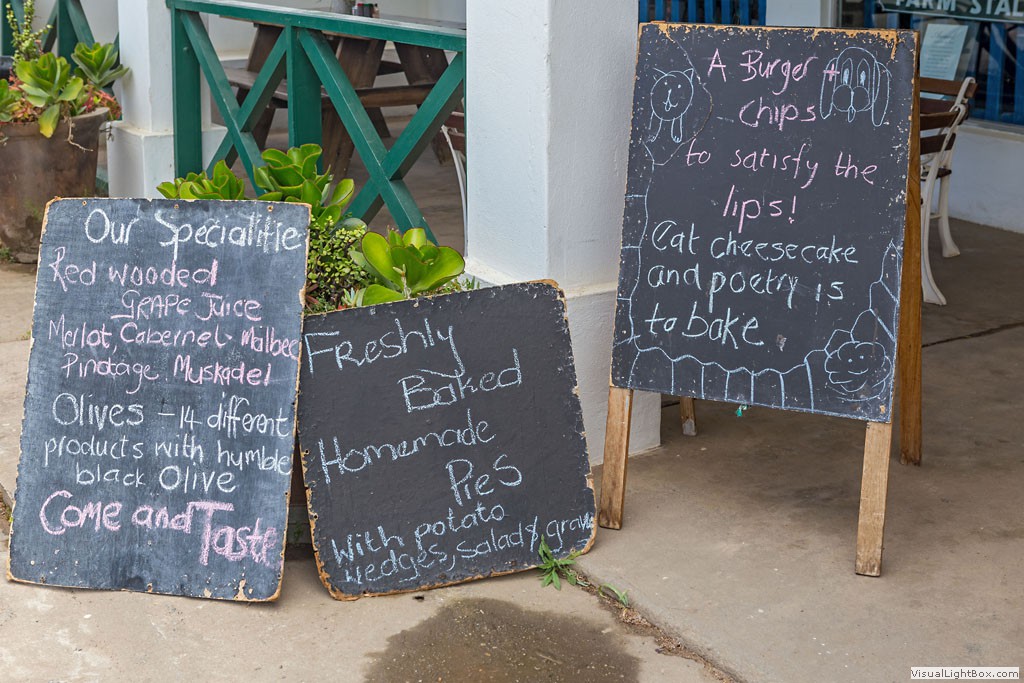 Our Specialitie
Red wooded
GRAPE JUICE
Merlot Cabernet Malbec
Pinotage Muskadel
Olives - 14 different
products with humble
black Olive
Come and Taste
Freshly
Baked
Homemade
Pies
With potato
Wedges, Salad & gravy
A Burger +
Chips
to satisfy the
lips!
Eat cheesecake
and poetry is
to bake
FARM STALL
VisualLightBox.com